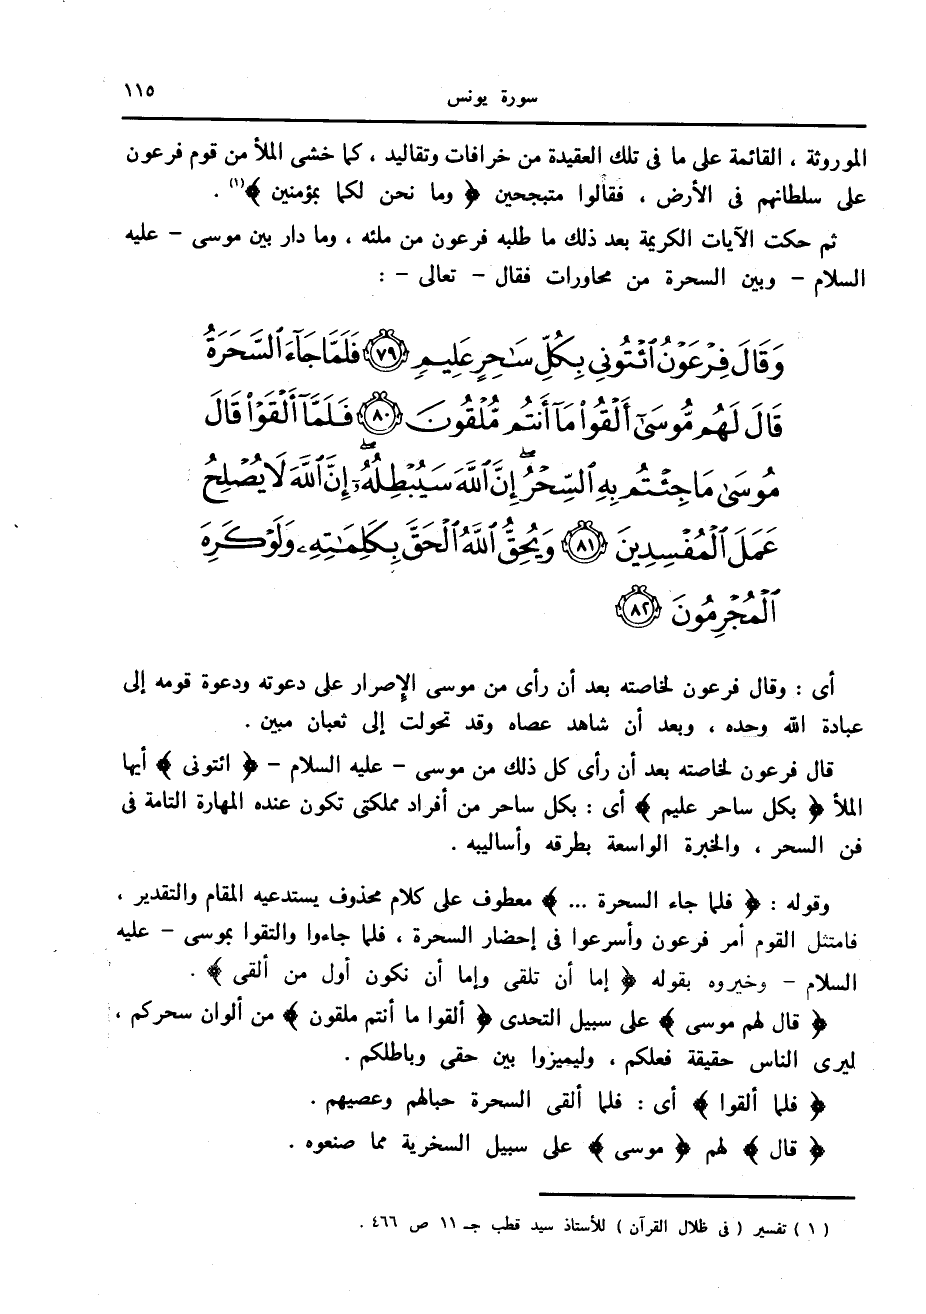 سورة يونس ١١٥
الموروثة ، القائمة على ما فى تلك العقيدة من خرافات وتقاليد ، كما خشى الملأ من قوم فرعون
على سلطانهم فى الأرض ، فقالوا متبجحين ﴿ وما نحن لكما بمؤمنين ﴾(١) .
ثم حكت الآيات الكريمة بعد ذلك ما طلبه فرعون من ملئه ، وما دار بين موسى – عليه
السلام – وبين السحرة من محاورات فقال – تعالى – :
وَقَالَ فِرْعَوْنُ ٱئْتُونِي بِكُلِّ سَٰحِرٍ عَلِيمٍ ٧٩ فَلَمَّا جَآءَ ٱلسَّحَرَةُ
قَالَ لَهُم مُّوسَىٰٓ أَلْقُوا۟ مَآ أَنتُم مُّلْقُونَ ٨٠ فَلَمَّآ أَلْقَوْا۟ قَالَ
مُوسَىٰ مَا جِئْتُم بِهِ ٱلسِّحْرُ ۖ إِنَّ ٱللَّهَ سَيُبْطِلُهُۥٓ ۖ إِنَّ ٱللَّهَ لَا يُصْلِحُ
عَمَلَ ٱلْمُفْسِدِينَ ٨١ وَيُحِقُّ ٱللَّهُ ٱلْحَقَّ بِكَلِمَٰتِهِۦ وَلَوْ كَرِهَ
ٱلْمُجْرِمُونَ ٨٢
أى : وقال فرعون لخاصته بعد أن رأى من موسى الإصرار على دعوته ودعوة قومه إلى
عبادة الله وحده ، وبعد أن شاهد عصاه وقد تحولت إلى ثعبان مبين .
قال فرعون لخاصته بعد أن رأى كل ذلك من موسى – عليه السلام – ﴿ ائتونى ﴾ أيها
الملأ ﴿ بكل ساحر عليم ﴾ أى : بكل ساحر من أفراد مملكتى تكون عنده المهارة التامة فى
فن السحر ، والخبرة الواسعة بطرقه وأساليبه .
وقوله : ﴿ فلما جاء السحرة ... ﴾ معطوف على كلام محذوف يستدعيه المقام والتقدير ،
فامتثل القوم أمر فرعون وأسرعوا فى إحضار السحرة ، فلما جاءوا والتقوا بموسى – عليه
السلام – وخيروه بقوله ﴿ إما أن تلقى وإما أن نكون أول من ألقى ﴾ .
﴿ قال لهم موسى ﴾ على سبيل التحدى ﴿ ألقوا ما أنتم ملقون ﴾ من ألوان سحركم ،
ليرى الناس حقيقة فعلكم ، وليميزوا بين حقى وباطلكم .
﴿ فلما ألقوا ﴾ أى : فلما ألقى السحرة حبالهم وعصيهم .
﴿ قال ﴾ لهم ﴿ موسى ﴾ على سبيل السخرية مما صنعوه .
( ١ ) تفسير ( فى ظلال القرآن ) للأستاذ سيد قطب جـ ١١ ص ٤٦٦ .